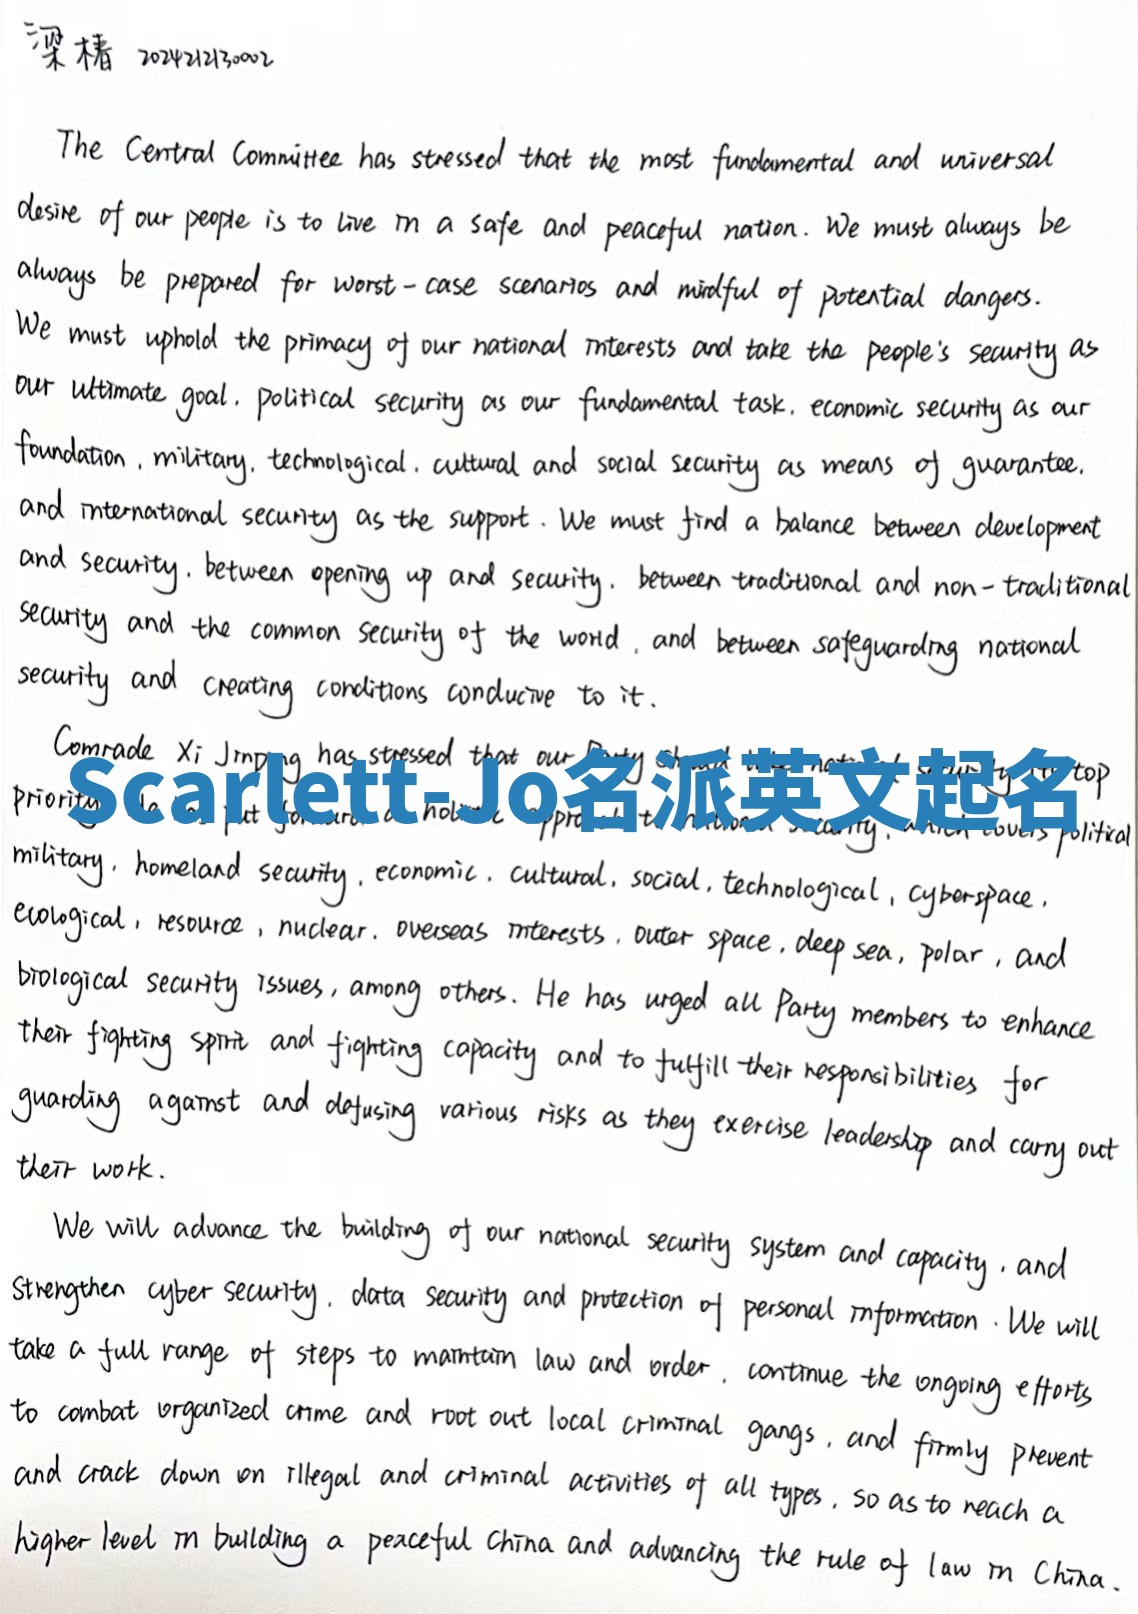 梁椿 2024212130002
The Central Committee has stressed that the most fundamental and universal
desire of our people is to live in a safe and peaceful nation. We must always be
always be prepared for worst-case scenarios and mindful of potential dangers.
We must uphold the primacy of our national interests and take the people's security as
our ultimate goal, political security as our fundamental task, economic security as our
foundation, military, technological, cultural and social security as means of guarantee,
and international security as the support. We must find a balance between development
and security, between opening up and security, between traditional and non-traditional
security and the common security of the world, and between safeguarding national
security and creating conditions conducive to it.
Comrade Xi Jinping has stressed that our Party should take national security top
Scarlett-Jo名派英文起名
priority put forward a holistic approach to national security, which covers political
military, homeland security, economic, cultural, social, technological, cyberspace,
ecological, resource, nuclear, overseas interests, outer space, deep sea, polar, and
biological security issues, among others. He has urged all Party members to enhance
their fighting spirit and fighting capacity and to fulfill their responsibilities for
guarding against and defusing various risks as they exercise leadership and carry out
their work.
We will advance the building of our national security system and capacity, and
strengthen cyber security, data security and protection of personal information. We will
take a full range of steps to maintain law and order, continue the ongoing efforts
to combat organized crime and root out local criminal gangs, and firmly prevent
and crack down on illegal and criminal activities of all types, so as to reach a
higher level in building a peaceful China and advancing the rule of law in China.